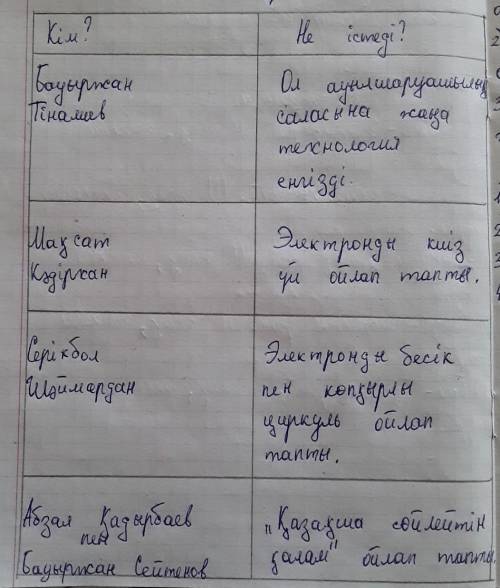 Кім?
Не істеді?
Бауыржан
Тіналиев
Ол ауылшаруашылық
саласына жаңа
технология
енгізді.
Мақсат
Қәдірхан
Электронды киіз
үй ойлап тапты.
Серікбол
Шәймардан
Электронды бесік
пен көпқырлы
циркуль ойлап
тапты.
Абзал Қадырбаев
пен
Бауыржан Сейтенов
"Қазақша сөйлейтін
қалам" ойлап тапты.